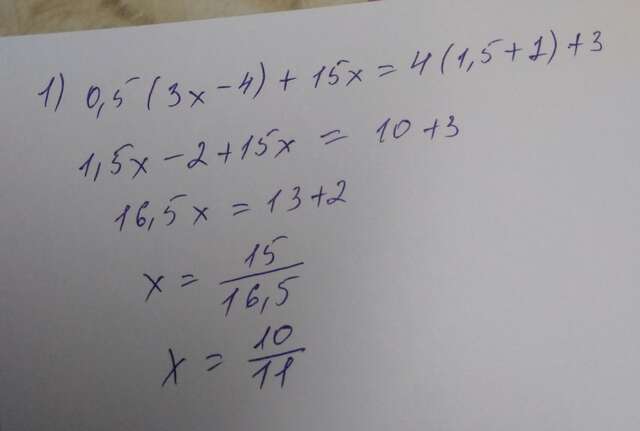 1) 0,5(3x-4)+15x=4(1,5+1)+3
1,5x-2+15x = 10+3
16,5x = 13+2
x = 15/16,5
x = 10/11